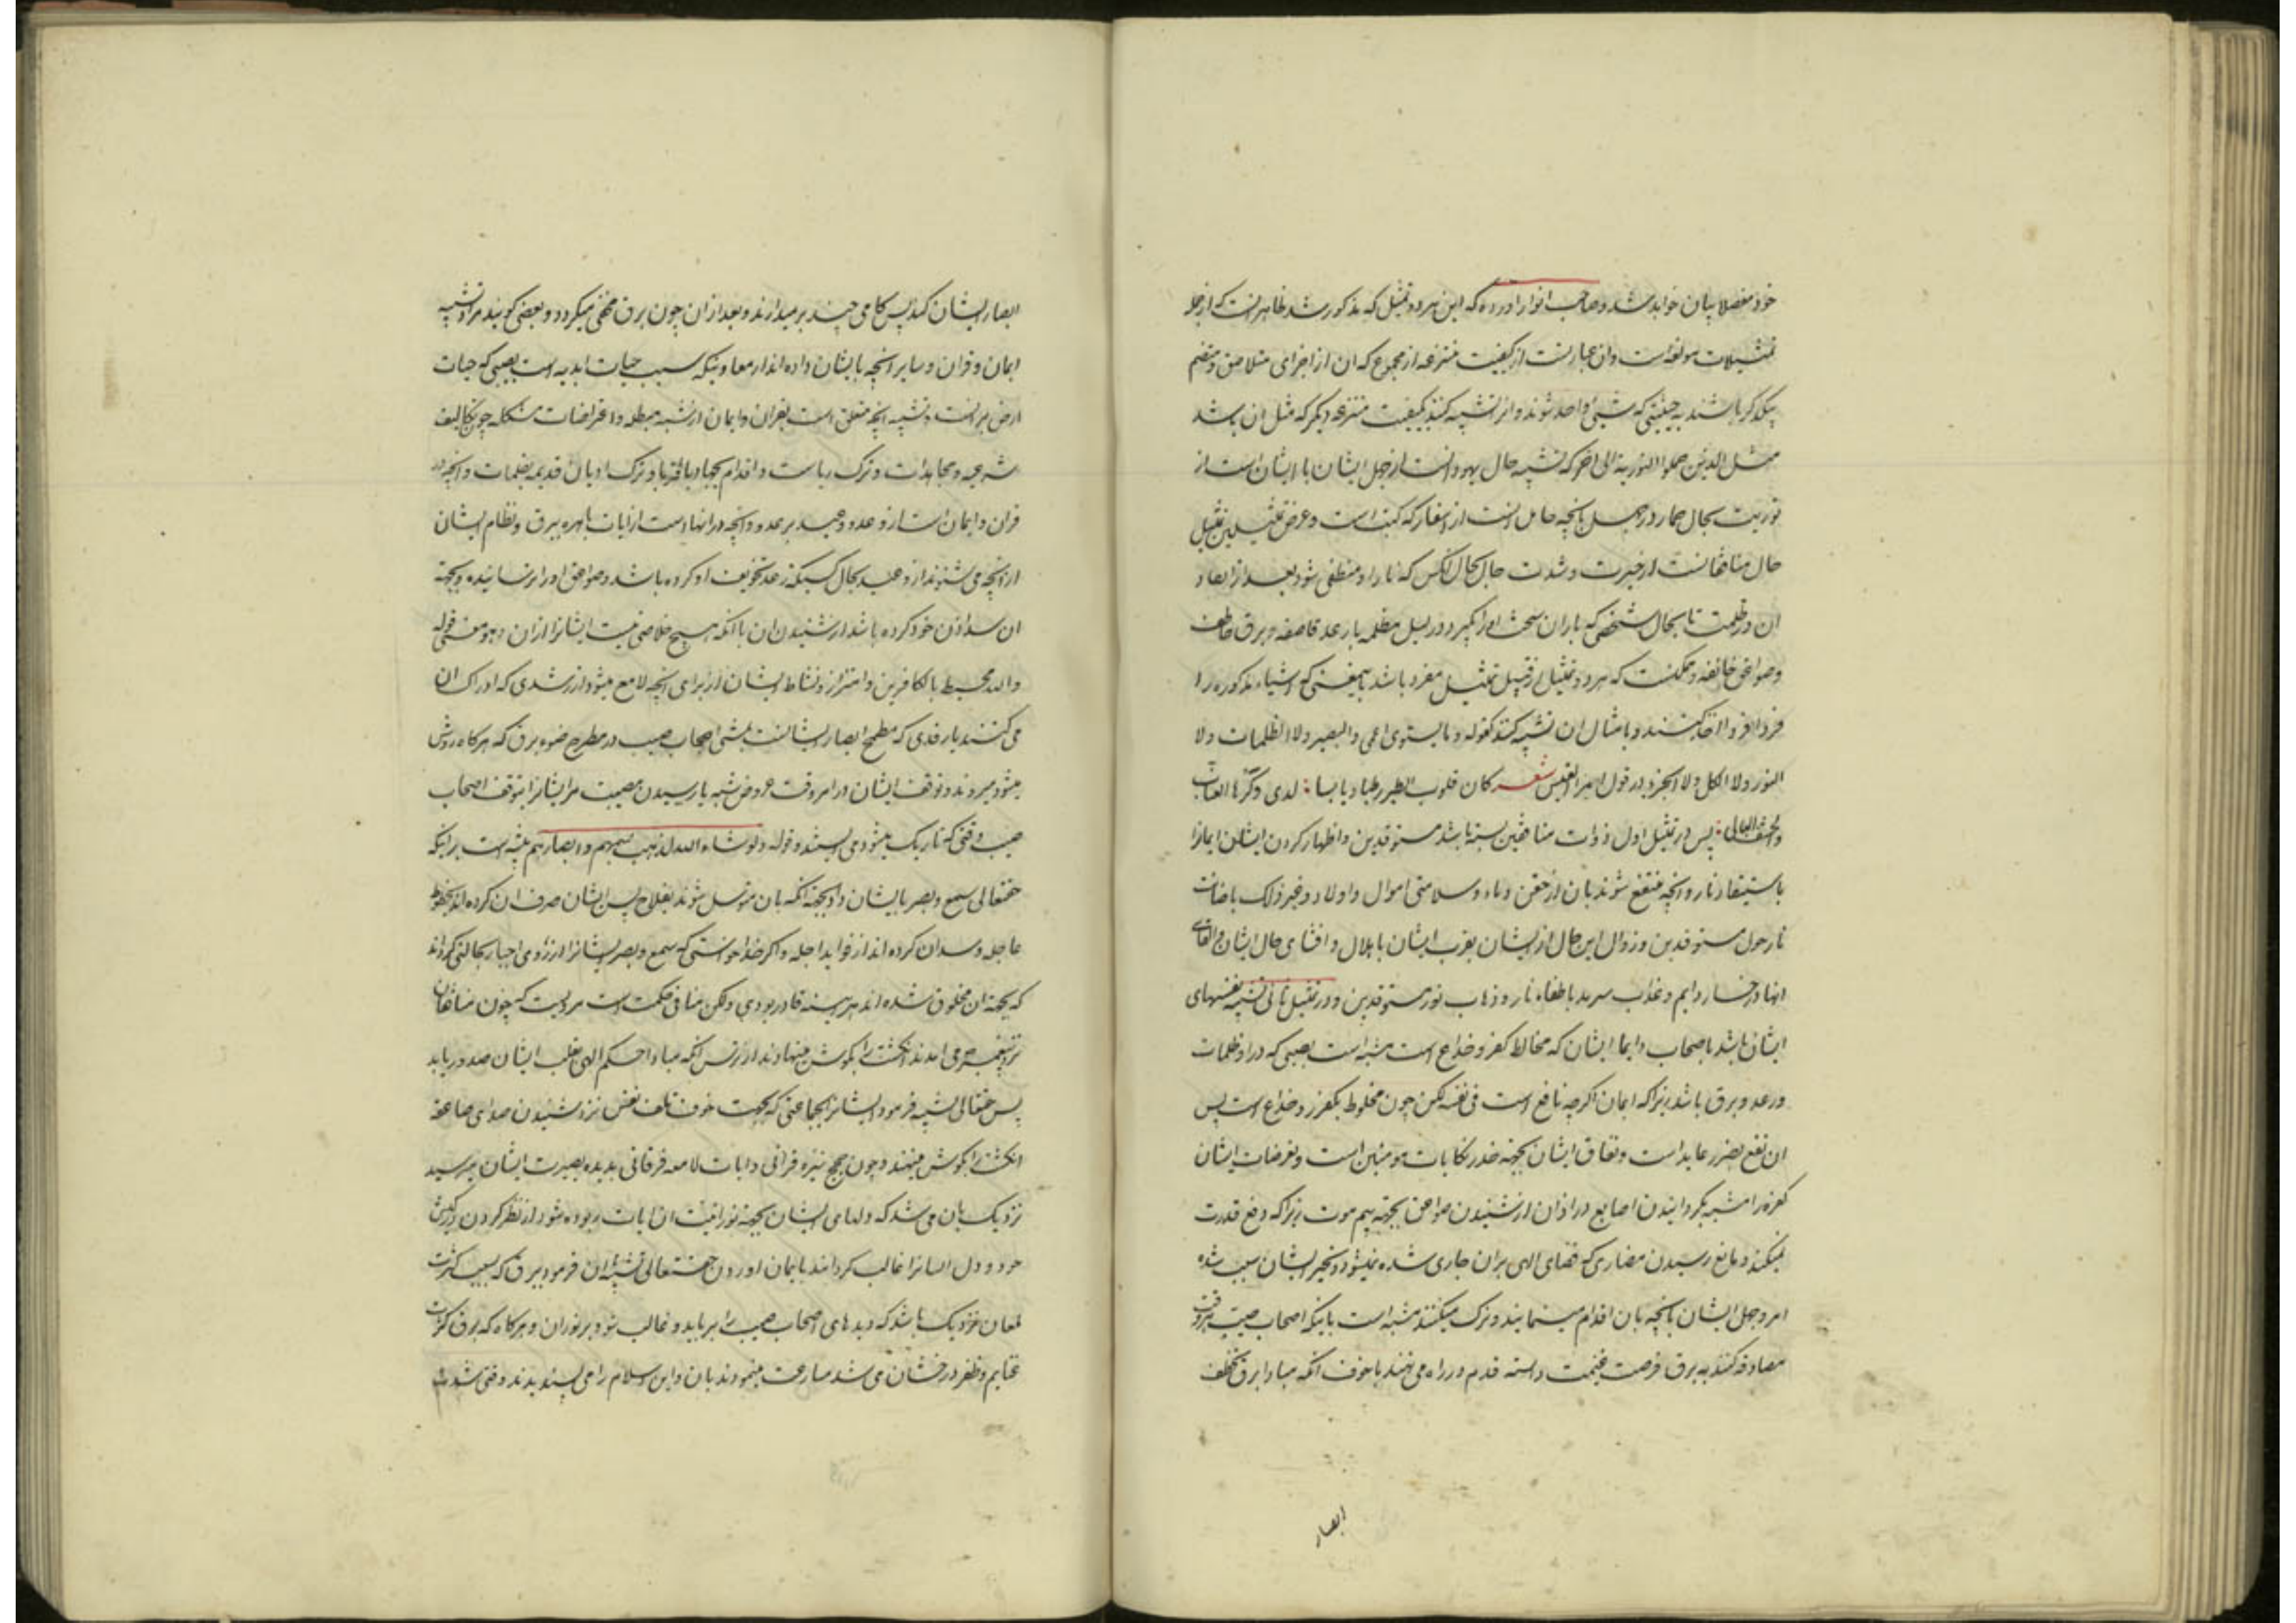 خود مفصلا بیان خواهد شد و صاحب انوار آورده که این هر دو تمثیل که مذکور شد ظاهر انست که از جمله
تمثیلات مولفه است و ان عبارتست از کیفیت منتزعه از مجموع که ان از اجزای متلاصق و منضم
بیکدکر باشند به حیثیتی که شیئ واحد شوند و انرا تشبیه کنند بکیفیت منتزعه دیکر که مثل ان باشد
مثل الذین حملوا التوریة الی اخر که تشبیه حال یهود است از جهل ایشان با ایشان است از
توریت بحال حمار در جهل بانچه حامل انست از اسفار که کتب است و غرض تمثیلین تمثیل
حال منافقانست از حیرت و شدت حال بحال انکس که نار او منطفی شود بعد از ایقاد
ان در ظلمت تا بحال شخصی که باران سخت او را بگیرد در لیل مظلمه با رعد قاصفه و برق خاطف
و صواعق خائفه و ممکنست که هر دو تمثیل از قبیل تمثیل مفرد باشد باین معنی که اشیاء مذکوره را
فردا فردا اخذ کنند و بامثال ان تشبیه کنند کقوله و ما یستوی الاعمی و البصیر ولا الظلمات ولا
النور ولا الظل ولا الحرور و در قول امرء القیس شعر کان قلوب الطیر رطبا و یابسا لدی وکرها العناب
والحشف البالی پس در تمثیل اول ذوات منافقین تشبیه باشد بمستوقدین و اظهار کردن ایشان ایمانرا
باستیقاد نار و انچه منتفع شوند بان از حقن دماء و سلامتی اموال و اولاد و غیر ذلک باضائت
نار حول مستوقدین و زوال این حال از ایشان بقرب ایشان باهلاک و افشای حال ایشان و القای
انها در خسار دایم و عذاب سرمد باطفاء نار و ذهاب نور مستوقدین و در تمثیل ثانی تشبیه نفسهای
ایشان باشد باصحاب و ایمان ایشان که مخالط کفر و خداع است مشبه است بصیبی که در او ظلمات
و رعد و برق باشد زیرا که ایمان اکرچه نافع است فی نفسه لکن چون مخلوط بکفر و خداع است پس
ان نفع بضرر عایداست و نفاق ایشان بجهة حذر نکایات مومنین است و تعرضات ایشان
کفره را مشبه بکردانیدن اصابع در اذان از شنیدن صواعق بجهة بیم موت زیرا که دفع قدرت
نمیکند و مانع رسیدن مضاری که قضای الهی بران جاری شده نمیشود و تحیر ایشان بسبب شدة
امر و جهل ایشان بانچه بان اقدام مینمایند و ترک میکنند مشبه است باینکه اصحاب صیب هر وقت
مصادفه کنند به برق فرصت غنیمت دانسته قدم در راه می نهند با خوف انکه مبادا برق خطف
ابصار
ابصار ایشان کند پس کامی چند برمیدارند و بعد از ان چون برق مخفی میکردد و بعضی کویند مراد تشبیه
ایمان و قران و سایر انچه بایشان داده اند از معاوینکه سبب حیات ابدیه است بصیبی که حیات
ارض بر انست و تشبیه انچه متعلق است بقران و ایمان از شبه مبطله و اعتراضات مشکله چون تکالیف
شرعیه و مجاهدات و ترک ریاست و اقدام بجهاد با قربا و ترک ادیان قدیمه بظلمات و انچه در
قران و ایمان است از وعد و وعید برعد و انچه در انهاست از ایات باهره ببرق و نظام ایشان
از انچه می شنوند از وعید بحال کسیکه رعد تخویف او کرده باشد و صواعق او را ترسانیده و بجهة
ان سد اذن خود کرده باشد از شنیدن ان با انکه هیچ خلاصی نیست ایشانرا از ان و هو معنی قوله
والله محیط بالکافرین و اهتزاز و نشاط ایشان از برای انچه لامع میشود از رشدی که ادراک ان
می کنند یا رفدی که مطمح ابصار ایشانست بمشی اصحاب صیب در مطرح ضوء برق که هرکاه روشن
میشود میروند و توقف ایشان در امر وقت عروض شبه یا رسیدن مصیبت مر ایشانرا بتوقف اصحاب
صیب وقتی که تاریک میشود می ایستند و قوله ولو شاء الله لذهب بسمعهم و ابصارهم تنبیه است برانکه
حقتعالی سمع و بصر بایشان داد بجهة انکه بان متوسل شوند بفلاح پس ایشان صرف ان کرده اند بحظوظ
عاجله و سد ان کرده اند از فواید اجله و اکر خدا خواستی که سمع و بصر ایشانرا از روی اجبار بحالتی کرداند
که بجهة ان مخلوق شده اند هر اینه قادر بودی ولکن منافی حکمت است مرویست که چون منافقان
نزد پیغمبر می امدند انکشت را بکوش مینهادند از ترس انکه مبادا حکم الهی بقتل ایشان صدور یابد
پس حقتعالی تشبیه فرمود ایشانرا بجماعتی که بجهت خوف تلف نفس نزد شنیدن صدای صاعقه
انکشت را بکوش مینهند و چون حجج نیره قرانی و ایات لامعه فرقانی بدیده بصیرت ایشان میرسید
نزدیک بان می شد که دلهای ایشان بجهة نورانیت ان ایات ربوده شود از نظر کردن در کیش
خود و دل ایشانرا غالب کردانند بایمان اوردن حقتعالی تشبیه ان فرمود ببرق که بسبب کثرت
لمعان نزدیک باشد که دیدهای اصحاب صیب را برباید و غالب شود بر نور ان و هرکاه که برق کثرت
غنایم و ظفر درخشان می شد مسارعت مینمودند بان و این اسلام را می پسندیدند وقتی شدت